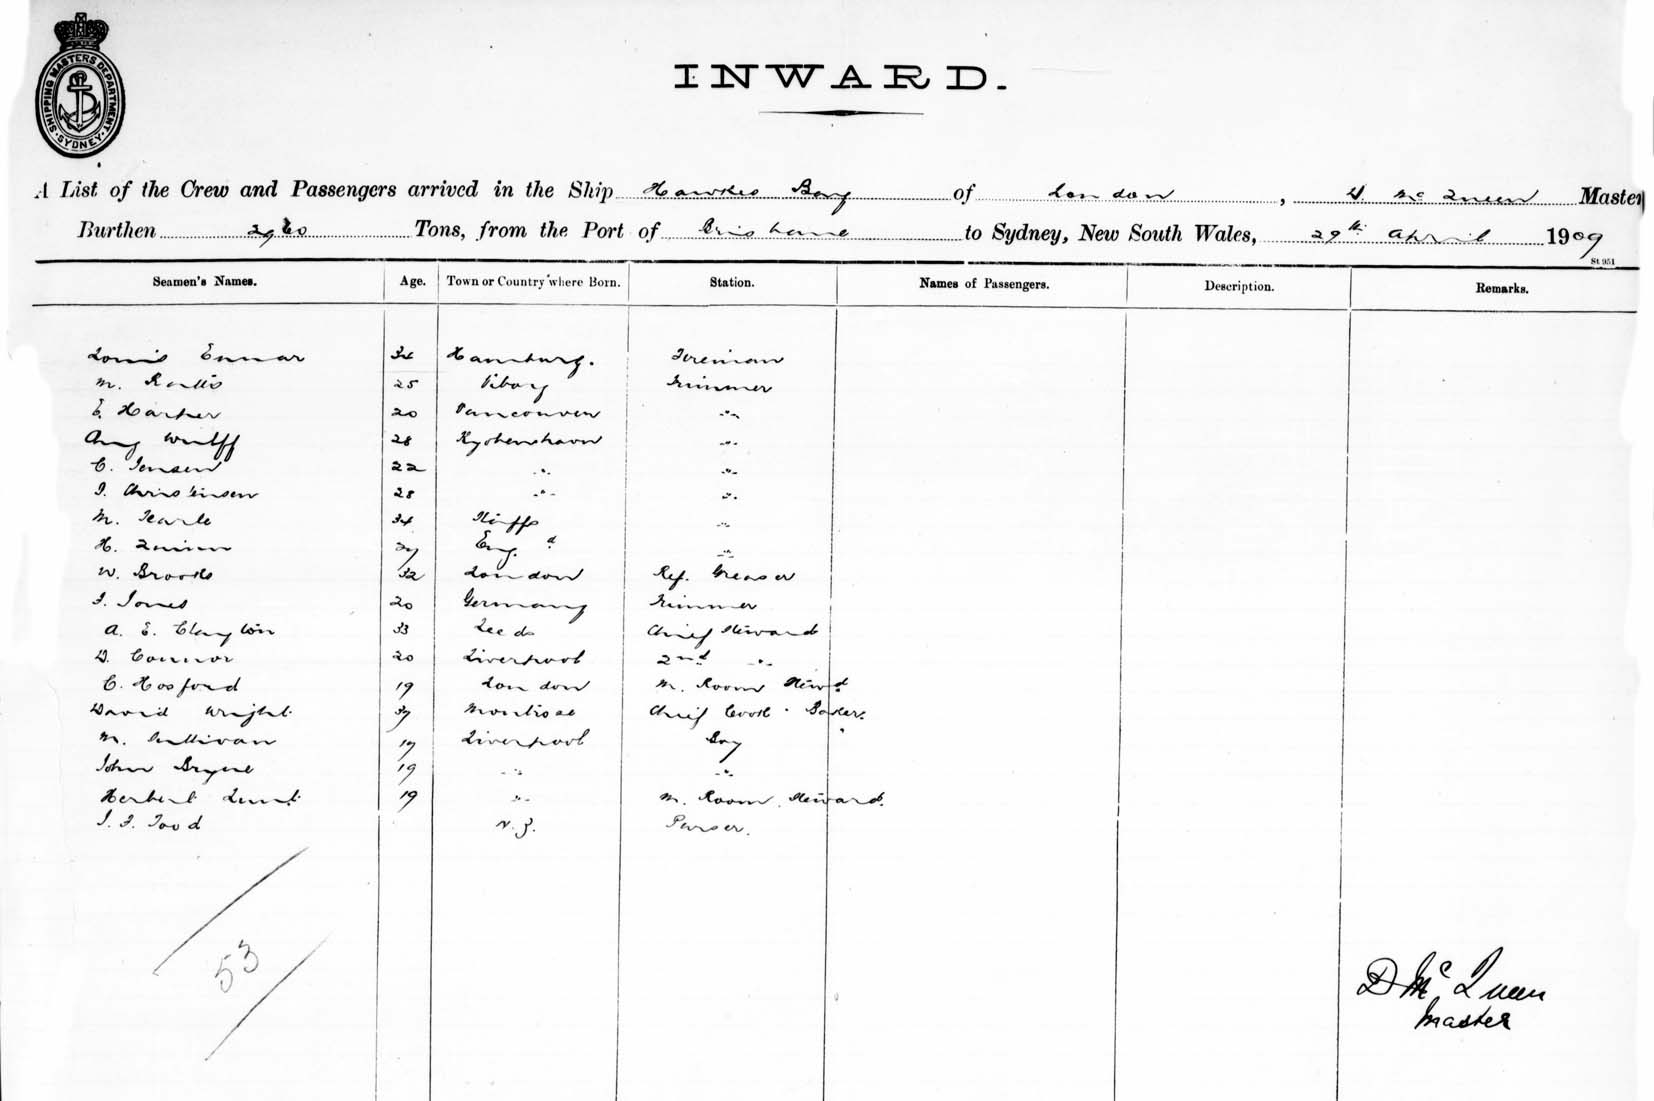 SHIPPING MASTERS DEPARTMENT SYDNEY
INWARD.
A List of the Crew and Passengers arrived in the Ship Hawkes Bay of London, D. McQueen Master
Burthen Tons, from the Port of Brisbane to Sydney, New South Wales, 29th April 1909
St 951
Seamen's Names. Age. Town or Country where Born. Station. Names of Passengers. Description. Remarks.
Louis 34 Hamburg. Fireman
M. 25 Viborg Trimmer
E. Harper 20 Vancouver -"-
Aug Wulff 28 Kjobenhavn -"-
C. Jensen 22 -"- -"-
I. Christensen 28 -"- -"-
M. Searle 34 -"-
H. Quinn Eng.d -"-
W. Brooks 32 London Ref. Greaser
J. Jones 20 Germany Trimmer
A. E. Clayton 33 Leeds Chief Steward
D. Connor 20 Liverpool 2nd -"-
C. Hosford 19 London M. Room Stew'd
David Wright 37 Montrose Chief Cook & Baker.
M. Sullivan 19 Liverpool Boy
John Bryne 19 -"- -"-
Herbert Lunt 19 -"- M. Room Steward.
J. F. Todd N.Z. Purser.
53
D McQueen
Master